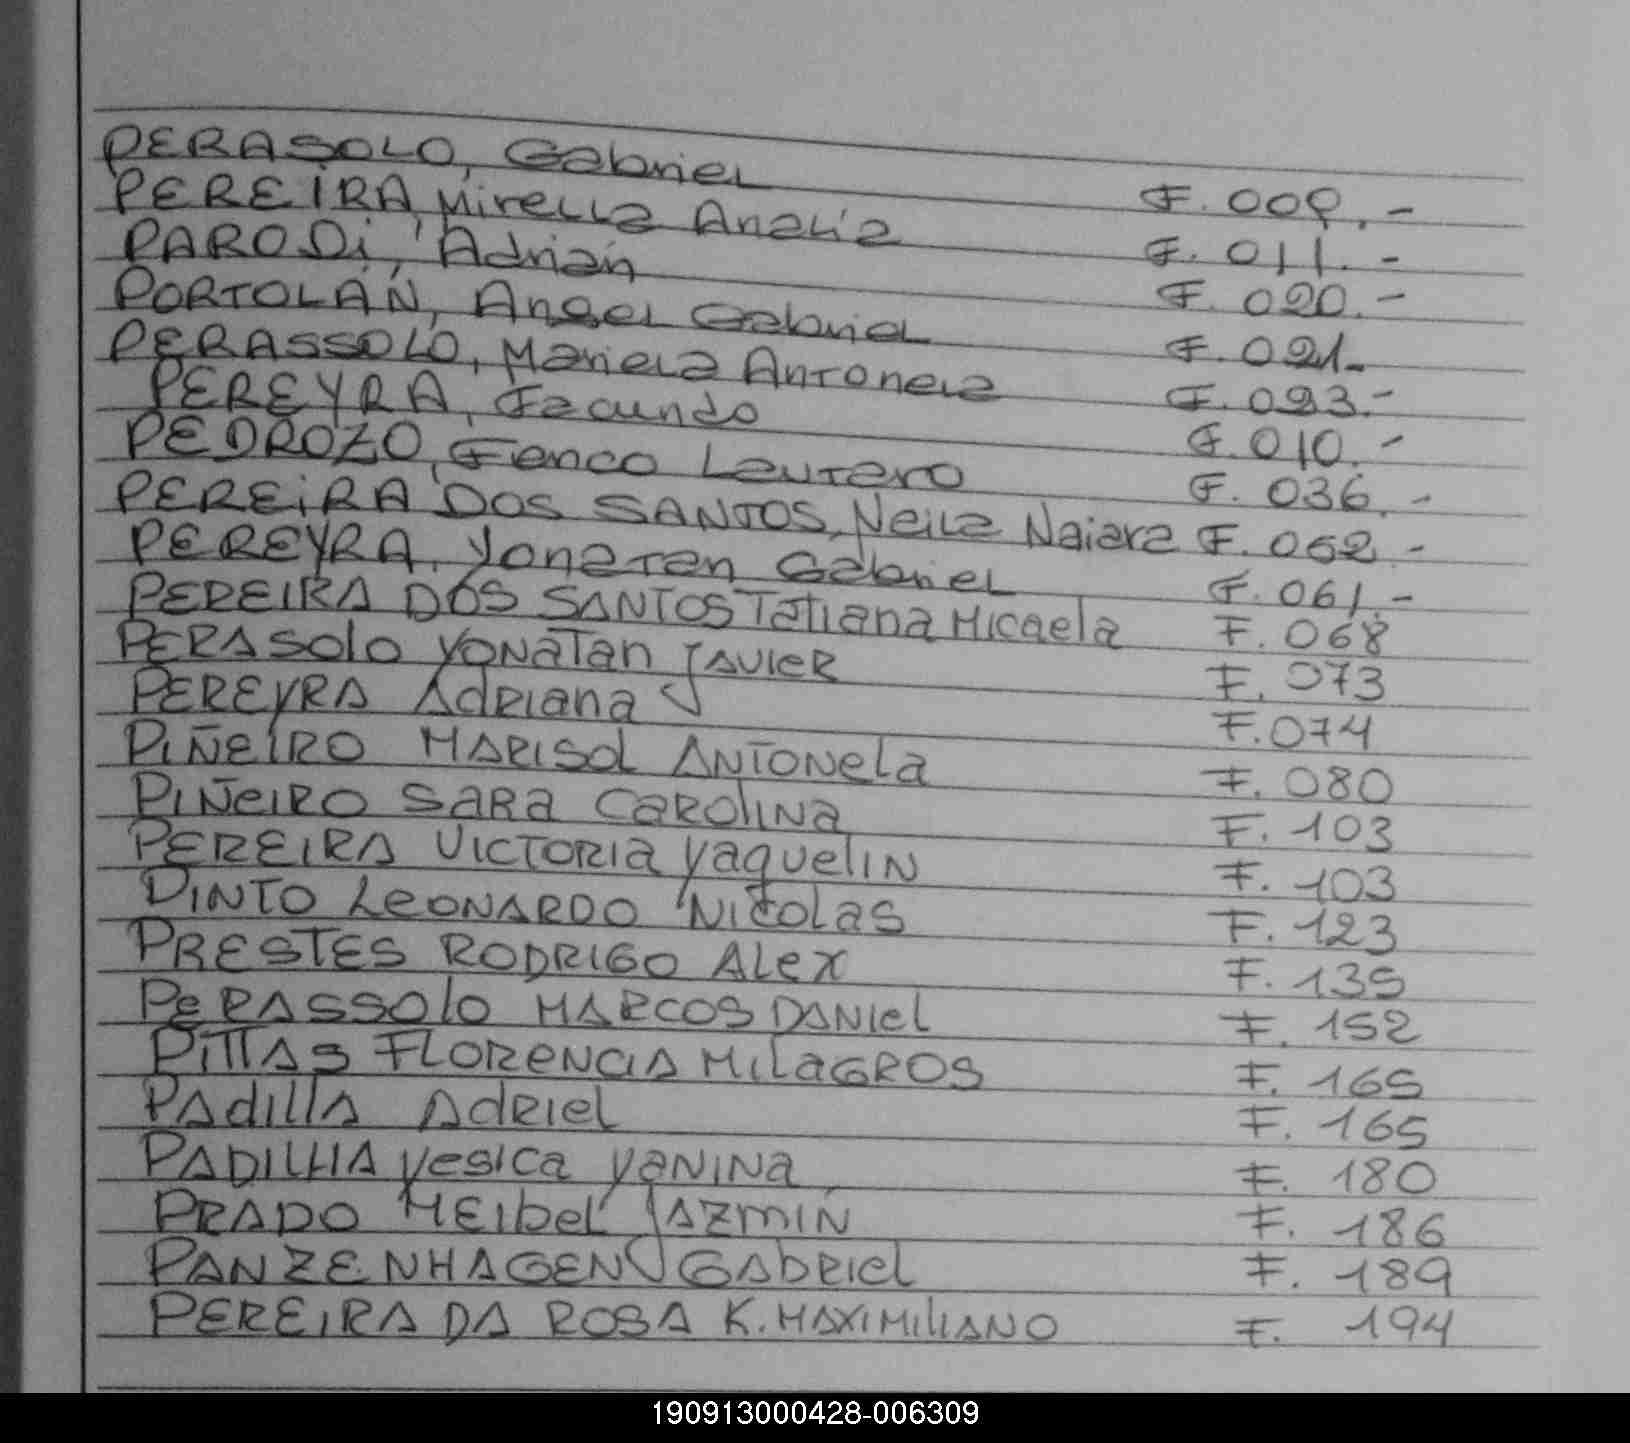 PERASOLO, Gabriel F. 009.-
PEREiRA, Mirella Analia F. 011.-
PARODi, Adrián F. 020.-
PORTOLÁN, Angel Gabriel F. 021.-
PERASSOLO, Mariela Antonela F. 023.-
PEREYRA, Facundo F. 010.-
PEDROZO, Franco Lautaro F. 036.-
PEREiRA DOS SANTOS, Neila Naiara F. 052.-
PEREYRA, Yonatan Gabriel F. 061.-
PEREIRA DOS SANTOS Tatiana Micaela F. 068
PERASolo YONaTan JAVIER F. 073
PEREYRA Adriana F. 074
PIÑEIRO MARISol ANTONela F. 080
PIÑEIRO SARA CAROlINA F. 103
PEREIRA VICTORIA YaquelIN F. 103
PINTO LEONARDO NICOLAS F. 123
PRESTES RODRIGO ALEX F. 135
PERASSOlO MARCOS DANIEL F. 152
PITTAS FLORENCIA MILAGROS F. 165
PAdIllA AdRIEl F. 165
PADILHA Yesica YANINA F. 180
PRADO MEIbel JAZMIN F. 186
PANZENHAGEN GAbRIEl F. 189
PEREIRA DA ROSA K. MAXIMILIANO F. 194
190913000428-006309